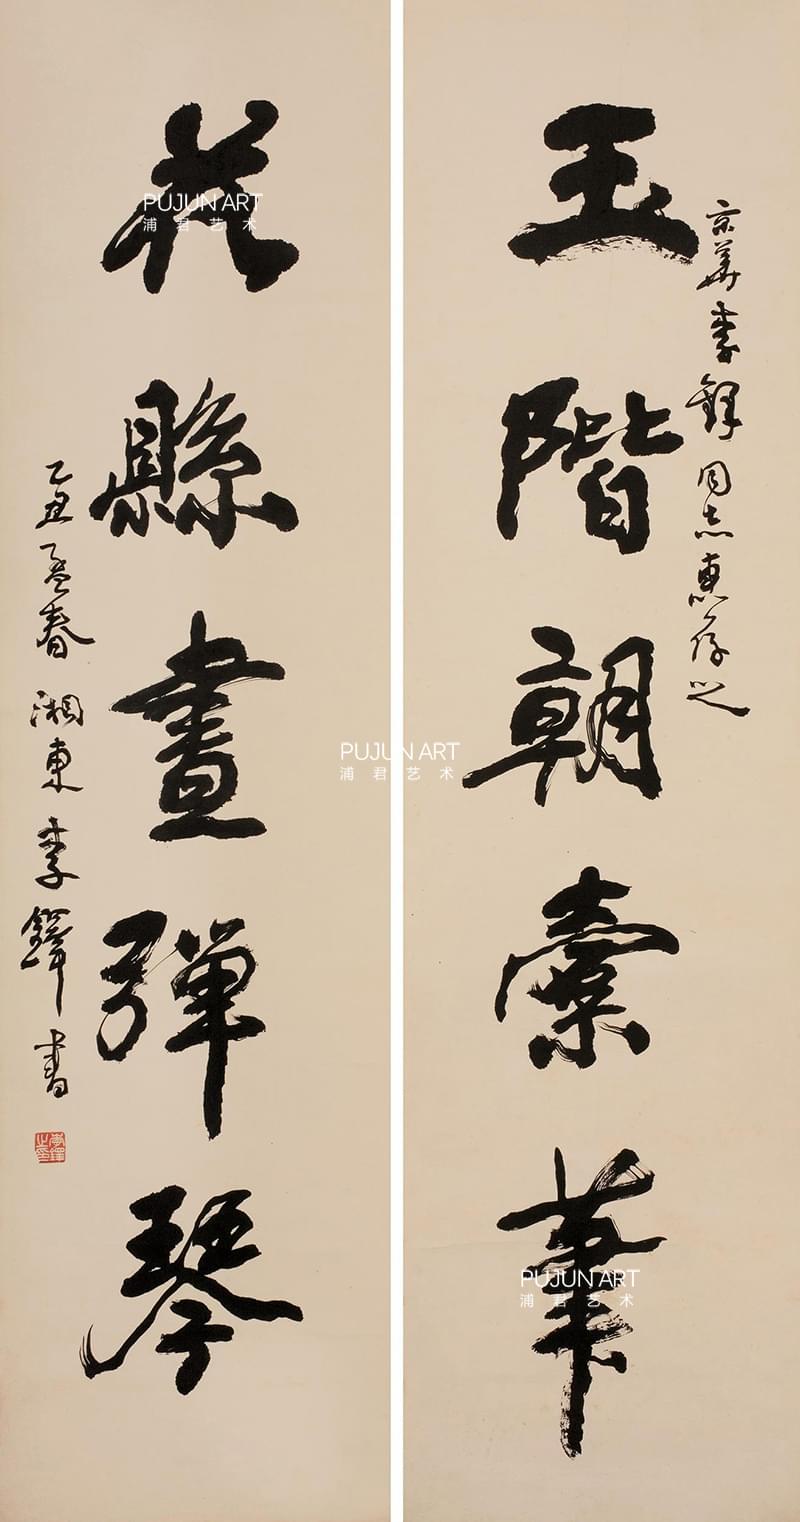 玉階朝橐筆
京華 同志惠存
花縣晝彈琴
乙丑孟春湘東李鐸書
李鐸之印
PUJUN ART
浦君艺术
PUJUN ART
浦君艺术
PUJUN ART
浦君艺术